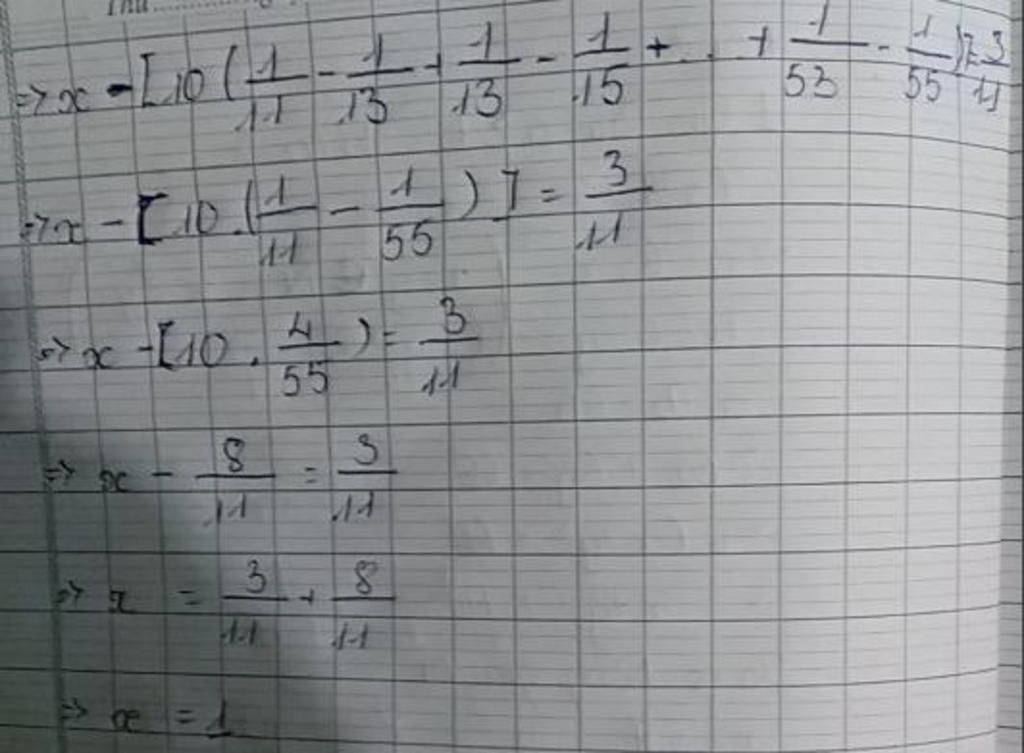 Thứ
=> x - [10 (1/11 - 1/13 + 1/13 - 1/15 + ... + 1/53 - 1/55)] = 3/11
=> x - [10 . (1/11 - 1/55)] = 3/11
=> x - [10 . 4/55) = 3/11
=> x - 8/11 = 3/11
=> x = 3/11 + 8/11
=> x = 1